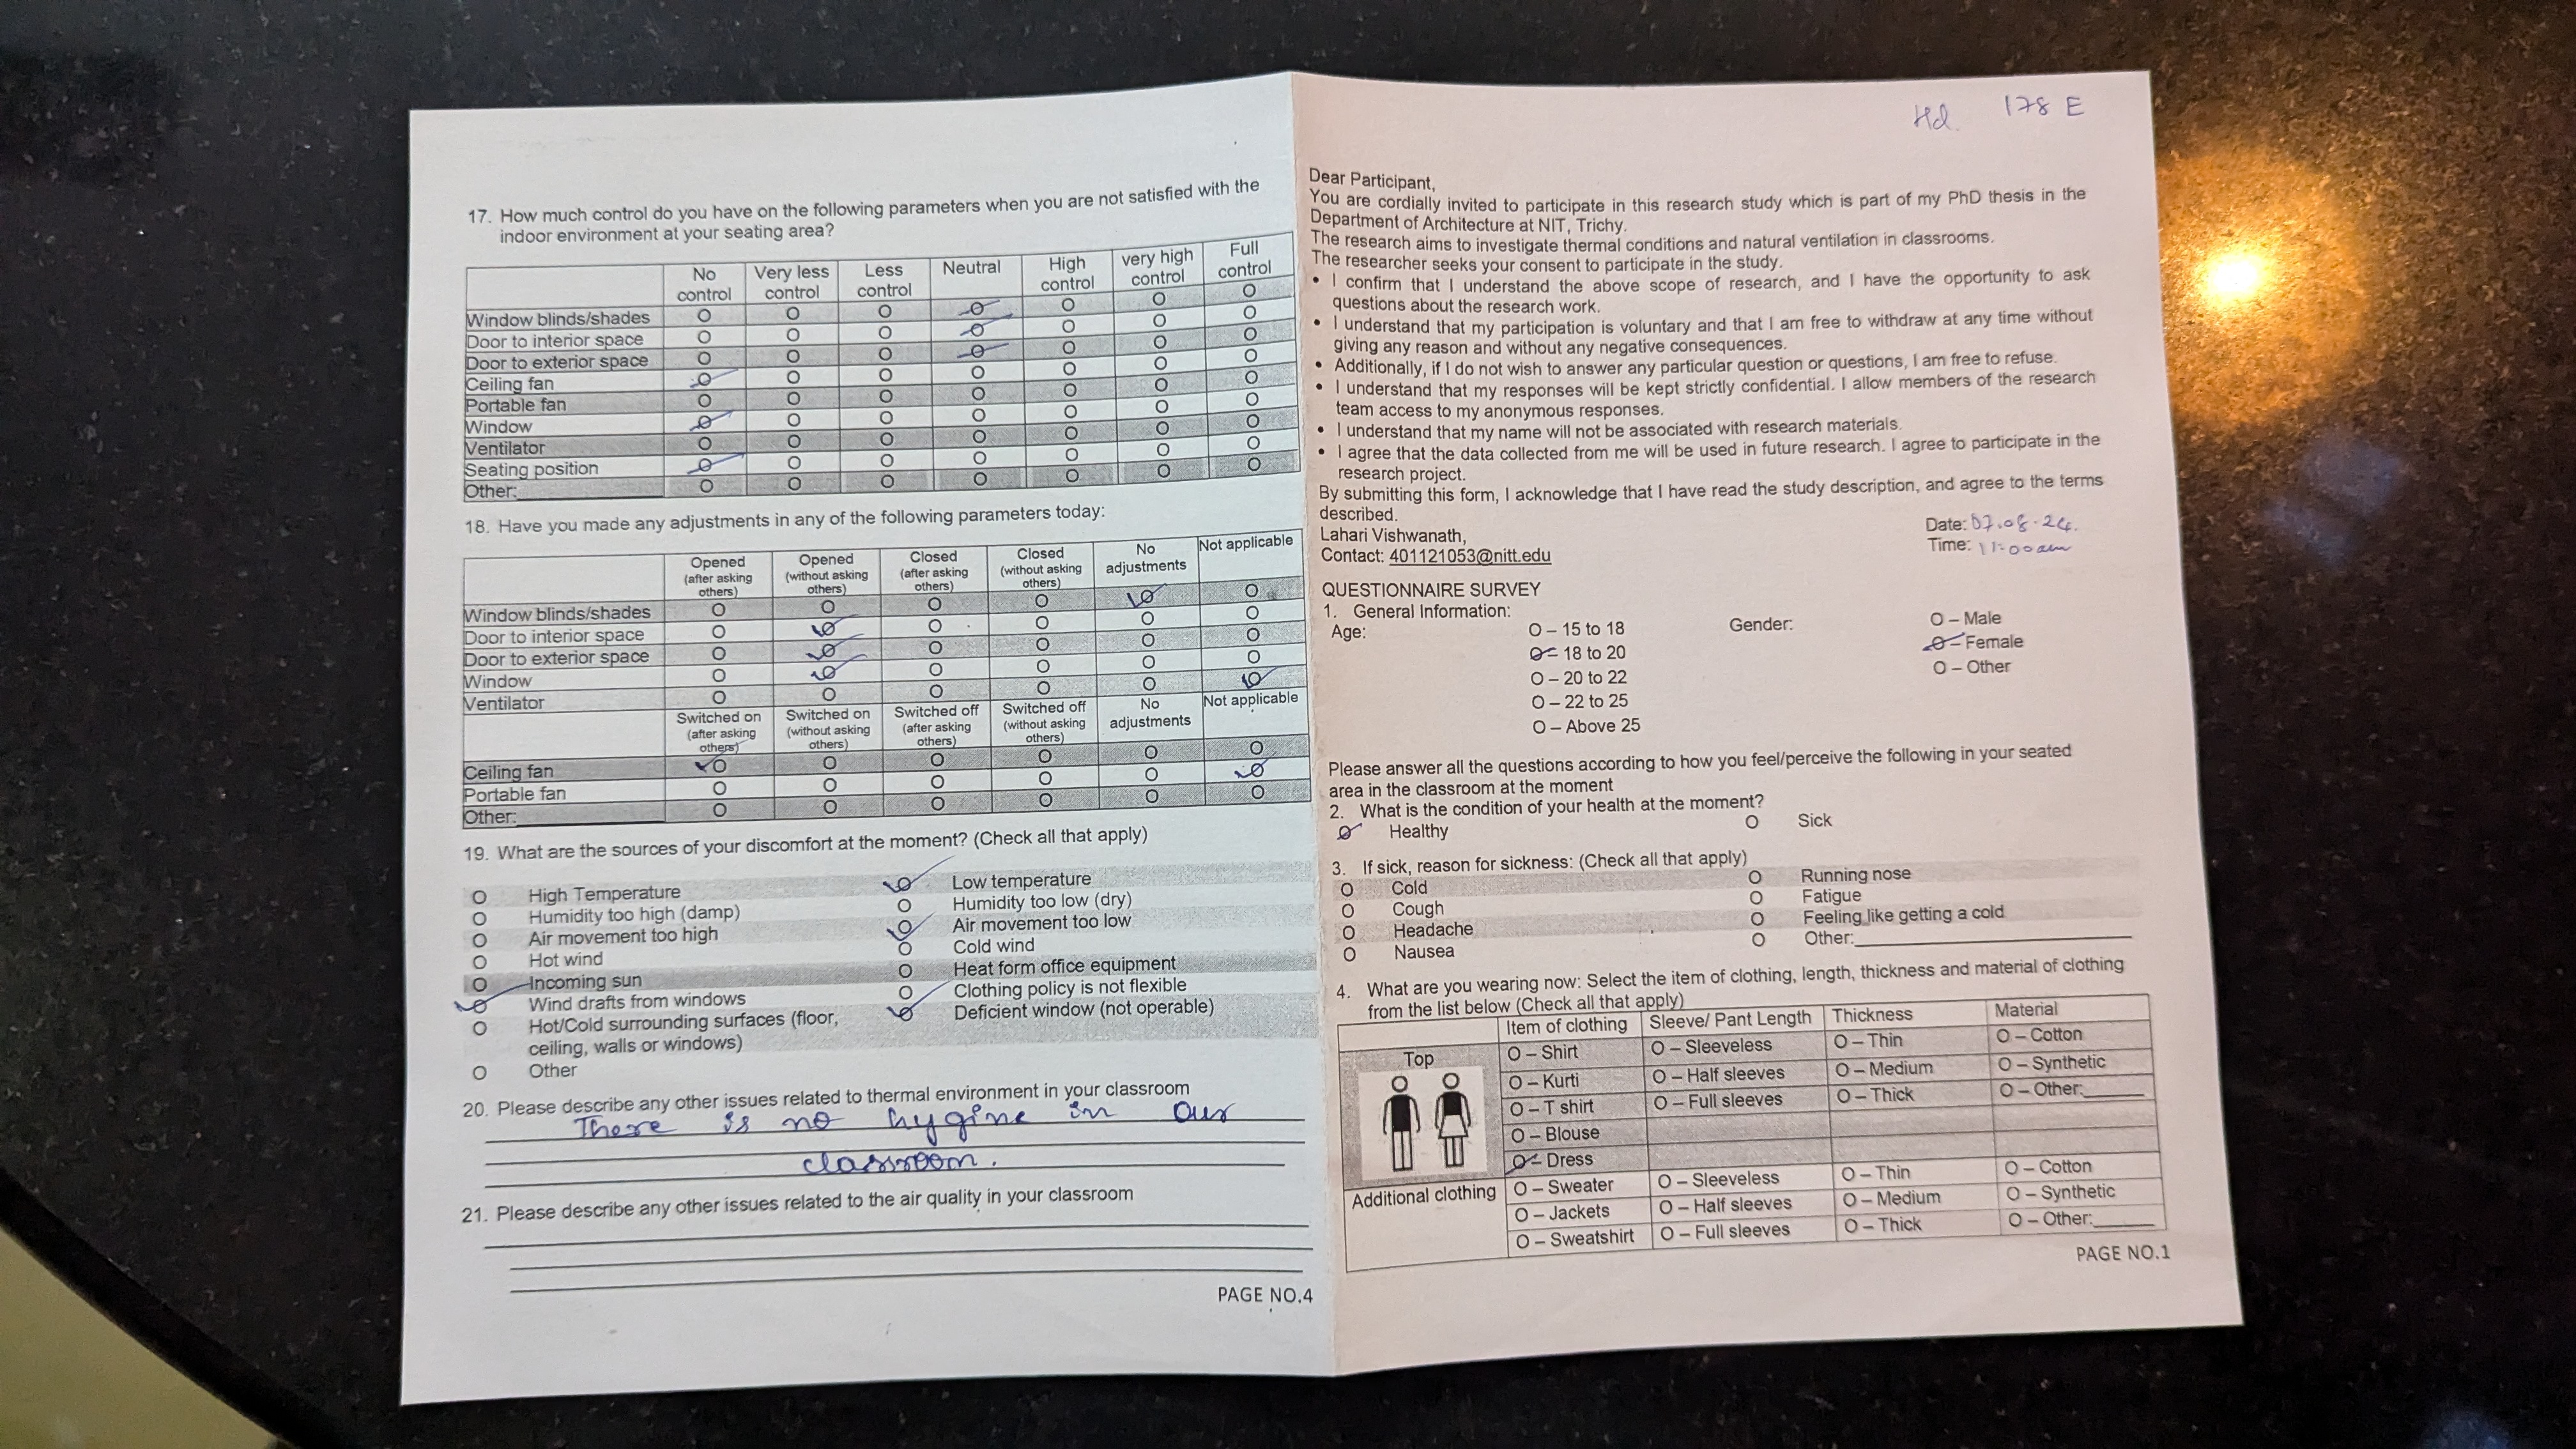 17. How much control do you have on the following parameters when you are not satisfied with the
indoor environment at your seating area?
No control Very less control Less control Neutral High control very high control Full control
Window blinds/shades O O O O O O O
Door to interior space O O O O O O O
Door to exterior space O O O O O O O
Ceiling fan O O O O O O O
Portable fan O O O O O O O
Window O O O O O O O
Ventilator O O O O O O O
Seating position O O O O O O O
Other: O O O O O O O
18. Have you made any adjustments in any of the following parameters today:
Opened (after asking others) Opened (without asking others) Closed (after asking others) Closed (without asking others) No adjustments Not applicable
Window blinds/shades O O O O O O
Door to interior space O O O O O O
Door to exterior space O O O O O O
Window O O O O O O
Ventilator O O O O O O
Switched on (after asking others) Switched on (without asking others) Switched off (after asking others) Switched off (without asking others) No adjustments Not applicable
Ceiling fan O O O O O O
Portable fan O O O O O O
Other: O O O O O O
19. What are the sources of your discomfort at the moment? (Check all that apply)
O High Temperature O Low temperature
O Humidity too high (damp) O Humidity too low (dry)
O Air movement too high O Air movement too low
O Hot wind O Cold wind
O Incoming sun O Heat form office equipment
O Wind drafts from windows O Clothing policy is not flexible
O Hot/Cold surrounding surfaces (floor, O Deficient window (not operable)
ceiling, walls or windows)
O Other
20. Please describe any other issues related to thermal environment in your classroom
There is no hygine in our
classroom.
21. Please describe any other issues related to the air quality in your classroom
PAGE NO.4
Hd. 178 E
Dear Participant,
You are cordially invited to participate in this research study which is part of my PhD thesis in the
Department of Architecture at NIT, Trichy.
The research aims to investigate thermal conditions and natural ventilation in classrooms.
The researcher seeks your consent to participate in the study.
• I confirm that I understand the above scope of research, and I have the opportunity to ask
questions about the research work.
• I understand that my participation is voluntary and that I am free to withdraw at any time without
giving any reason and without any negative consequences.
• Additionally, if I do not wish to answer any particular question or questions, I am free to refuse.
• I understand that my responses will be kept strictly confidential. I allow members of the research
team access to my anonymous responses.
• I understand that my name will not be associated with research materials.
• I agree that the data collected from me will be used in future research. I agree to participate in the
research project.
By submitting this form, I acknowledge that I have read the study description, and agree to the terms
described.
Lahari Vishwanath, Date: 07.08.24.
Contact: 401121053@nitt.edu Time: 11:00am
QUESTIONNAIRE SURVEY
1. General Information:
Age: O – 15 to 18 Gender: O – Male
O – 18 to 20 O – Female
O – 20 to 22 O – Other
O – 22 to 25
O – Above 25
Please answer all the questions according to how you feel/perceive the following in your seated
area in the classroom at the moment
2. What is the condition of your health at the moment?
O Healthy O Sick
3. If sick, reason for sickness: (Check all that apply)
O Cold O Running nose
O Cough O Fatigue
O Headache O Feeling like getting a cold
O Nausea O Other:
4. What are you wearing now: Select the item of clothing, length, thickness and material of clothing
from the list below (Check all that apply)
Item of clothing Sleeve/ Pant Length Thickness Material
Top O – Shirt O – Sleeveless O – Thin O – Cotton
O – Kurti O – Half sleeves O – Medium O – Synthetic
O – T shirt O – Full sleeves O – Thick O – Other:
O – Blouse
O – Dress
Additional clothing O – Sweater O – Sleeveless O – Thin O – Cotton
O – Jackets O – Half sleeves O – Medium O – Synthetic
O – Sweatshirt O – Full sleeves O – Thick O – Other:
PAGE NO.1